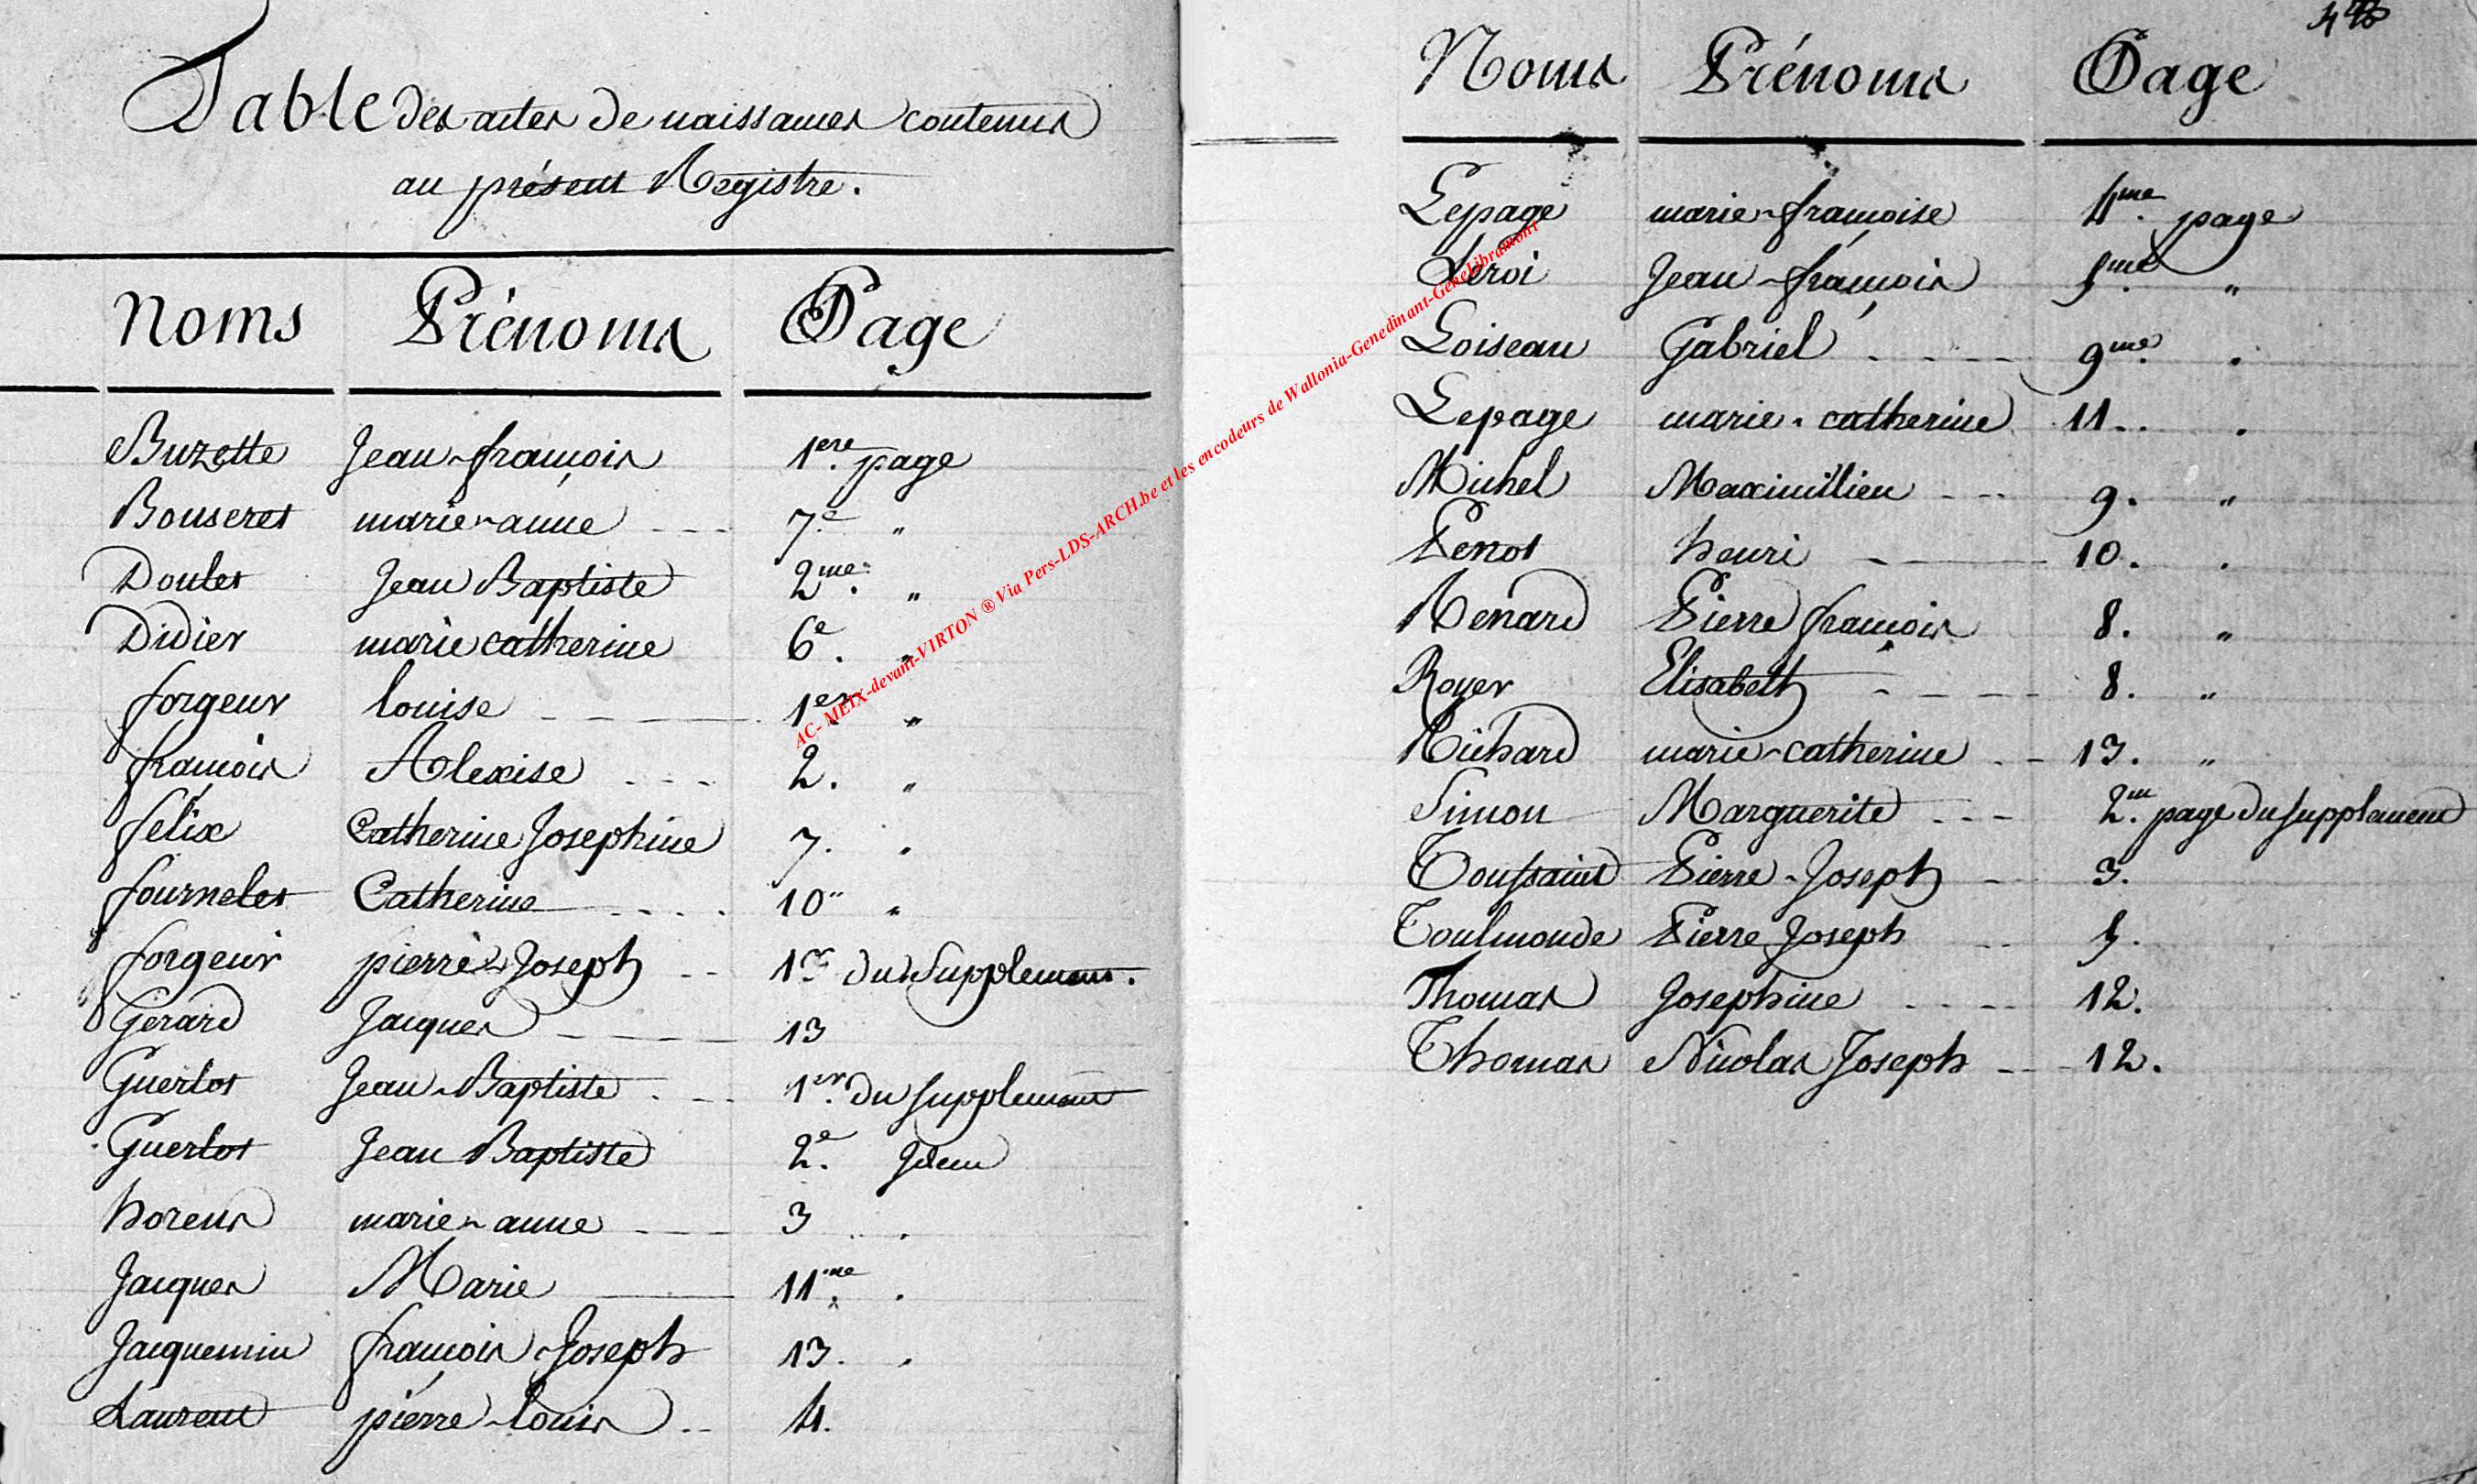 Table des actes de naissances contenus
au présent Registre.
Noms Prénoms Page
Buzette Jean-françois 1ere page
Bouseret marie-anne 7e "
Doulet Jean Baptiste 2me "
Didier marie catherine 6e "
forgeur louise 1er "
françois Alexise 2. "
félix Catherine Josephine 7. "
fournelet Catherine 10" "
forgeur pierre-Joseph 1er du Supplement.
Gerard Jacques 13
Guerlot Jean-Baptiste 1er du supplement
Guerlot Jean Baptiste 2e Idem
horeus marie-anne 3 .
Jacques Marie 11me .
Jacquemin françois-Joseph 13. .
Laurent pierre-louis 4.
Noms Prénoms Page
Lepage marie-françoise 4me page
Leroi Jean-françois 5me "
Loiseau Gabriel 9me .
Lepage marie-catherine 11. .
Michel Maximillien 9. "
Penot henri 10. .
Renard Pierre françois 8. "
Royer Elisabeth 8. "
Richard marie-catherine 13. "
Simon Marguerite 2m page du supplement
Toussaint Pierre-Joseph 3.
Toulmonde Pierre Joseph 5.
Thomas Josephine 12.
Thomas Nicolas Joseph 12.
AC- MEIX-devant-VIRTON ® Via Pers-LDS-ARCH.be et les encodeurs de Wallonia-Genedinant-GeneLibramont